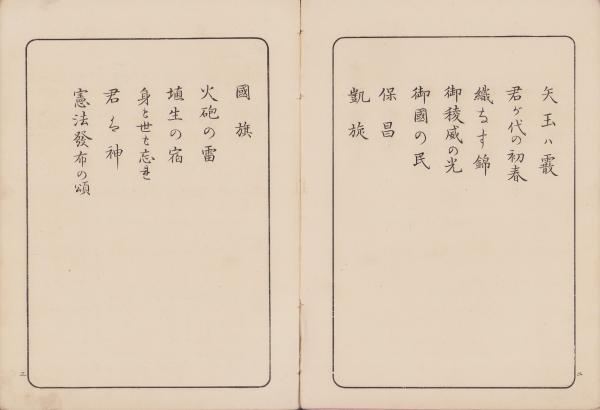 矢玉ハ霰
君ガ代の初春
織なす錦
御稜威の光
御國の民
保昌
凱旋
國旗
火砲の雷
埴生の宿
身も世も忘れ
君は神
憲法發布の頌